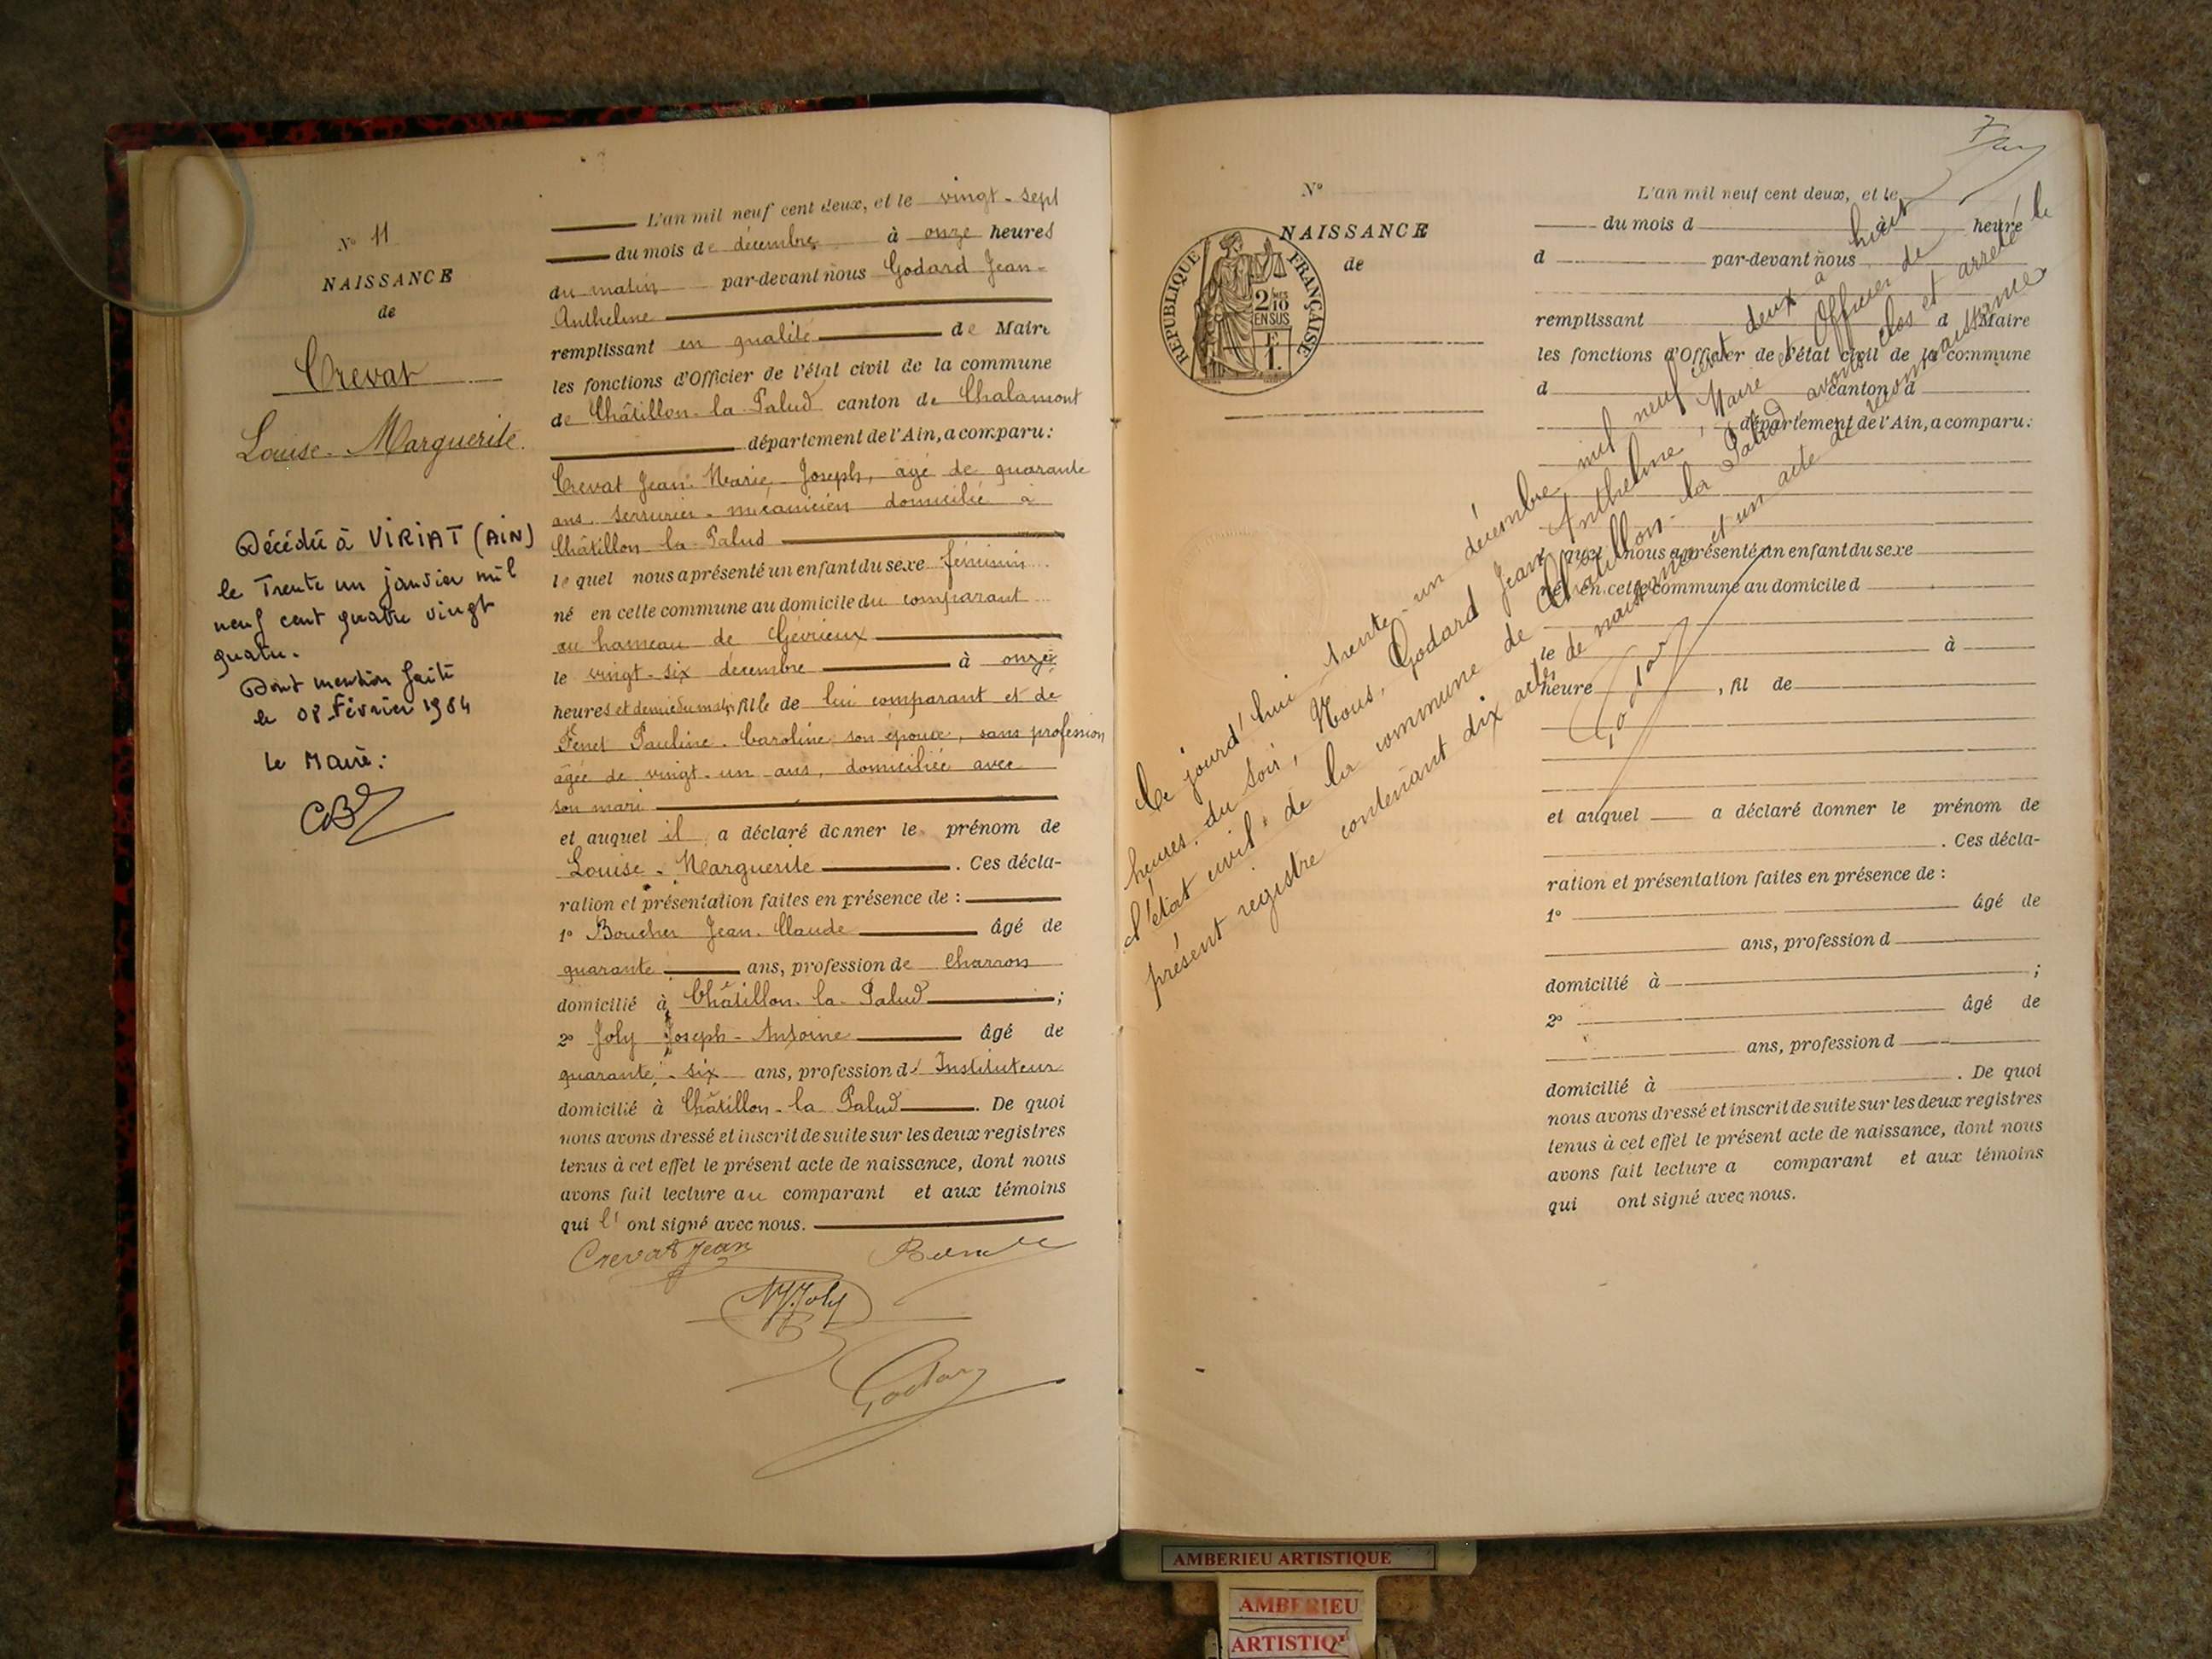 N° 11
NAISSANCE
de
Crevat
Louise-Marguerite.
Décédée à VIRIAT (AIN)
le Trente un janvier mil
neuf cent quatre vingt
quatre.
Dont mention faite
le 08 Février 1984
Le Maire:
L'an mil neuf cent deux, et le vingt-sept
du mois de décembre à onze heures
du matin par-devant nous Godard Jean-
Anthelme
remplissant en qualité de Maire
les fonctions d'Officier de l'état civil de la commune
de Châtillon-la-Palud canton de Chalamont
département de l'Ain, a comparu:
Crevat Jean-Marie-Joseph, âgé de quarante
ans serrurier-mécanicien domicilié à
Châtillon-la-Palud
lequel nous a présenté un enfant du sexe féminin
né en cette commune au domicile du comparant
au hameau de Gévrieux
le vingt-six décembre à onze
heures et demie du matin, fille de lui comparant et de
Fenet Pauline-Caroline son épouse, sans profession
âgée de vingt-un ans, domiciliée avec
son mari
et auquel il a déclaré donner le prénom de
Louise-Marguerite. Ces décla-
ration et présentation faites en présence de :
1° Boucher Jean-Claude âgé de
quarante ans, profession de Charron
domicilié à Châtillon-la-Palud ;
2° Joly Joseph-Antoine âgé de
quarante-six ans, profession d'Instituteur
domicilié à Châtillon-la-Palud. De quoi
nous avons dressé et inscrit de suite sur les deux registres
tenus à cet effet le présent acte de naissance, dont nous
avons fait lecture au comparant et aux témoins
qui l'ont signé avec nous.
Crevat Jean
Joly
Godard
N°
NAISSANCE
de
RÉPUBLIQUE FRANÇAISE
2/10
EN SUS
L'an mil neuf cent deux, et le
du mois d à heure
d par-devant nous
remplissant d Maire
les fonctions d'Officier de l'état civil de la commune
d canton d
département de l'Ain, a comparu:
quel nous a présenté un enfant du sexe
né en cette commune au domicile d
le à
heure , fil de
et auquel a déclaré donner le prénom de
. Ces décla-
ration et présentation faites en présence de :
1° âgé de
ans, profession d
domicilié à ;
2° âgé de
ans, profession d
domicilié à . De quoi
nous avons dressé et inscrit de suite sur les deux registres
tenus à cet effet le présent acte de naissance, dont nous
avons fait lecture a comparant et aux témoins
qui ont signé avec nous.
Ce jourd'hui trente-un décembre mil neuf cent deux à huit
heures du soir, Nous, Godard Jean Anthelme, Maire et Officier de
l'état civil de la commune de Châtillon-la-Palud avons clos et arrêté le
présent registre contenant dix actes de naissance et un acte de reconnaissance
Godard
AMBERIEU ARTISTIQUE
AMBERIEU
ARTISTIQU